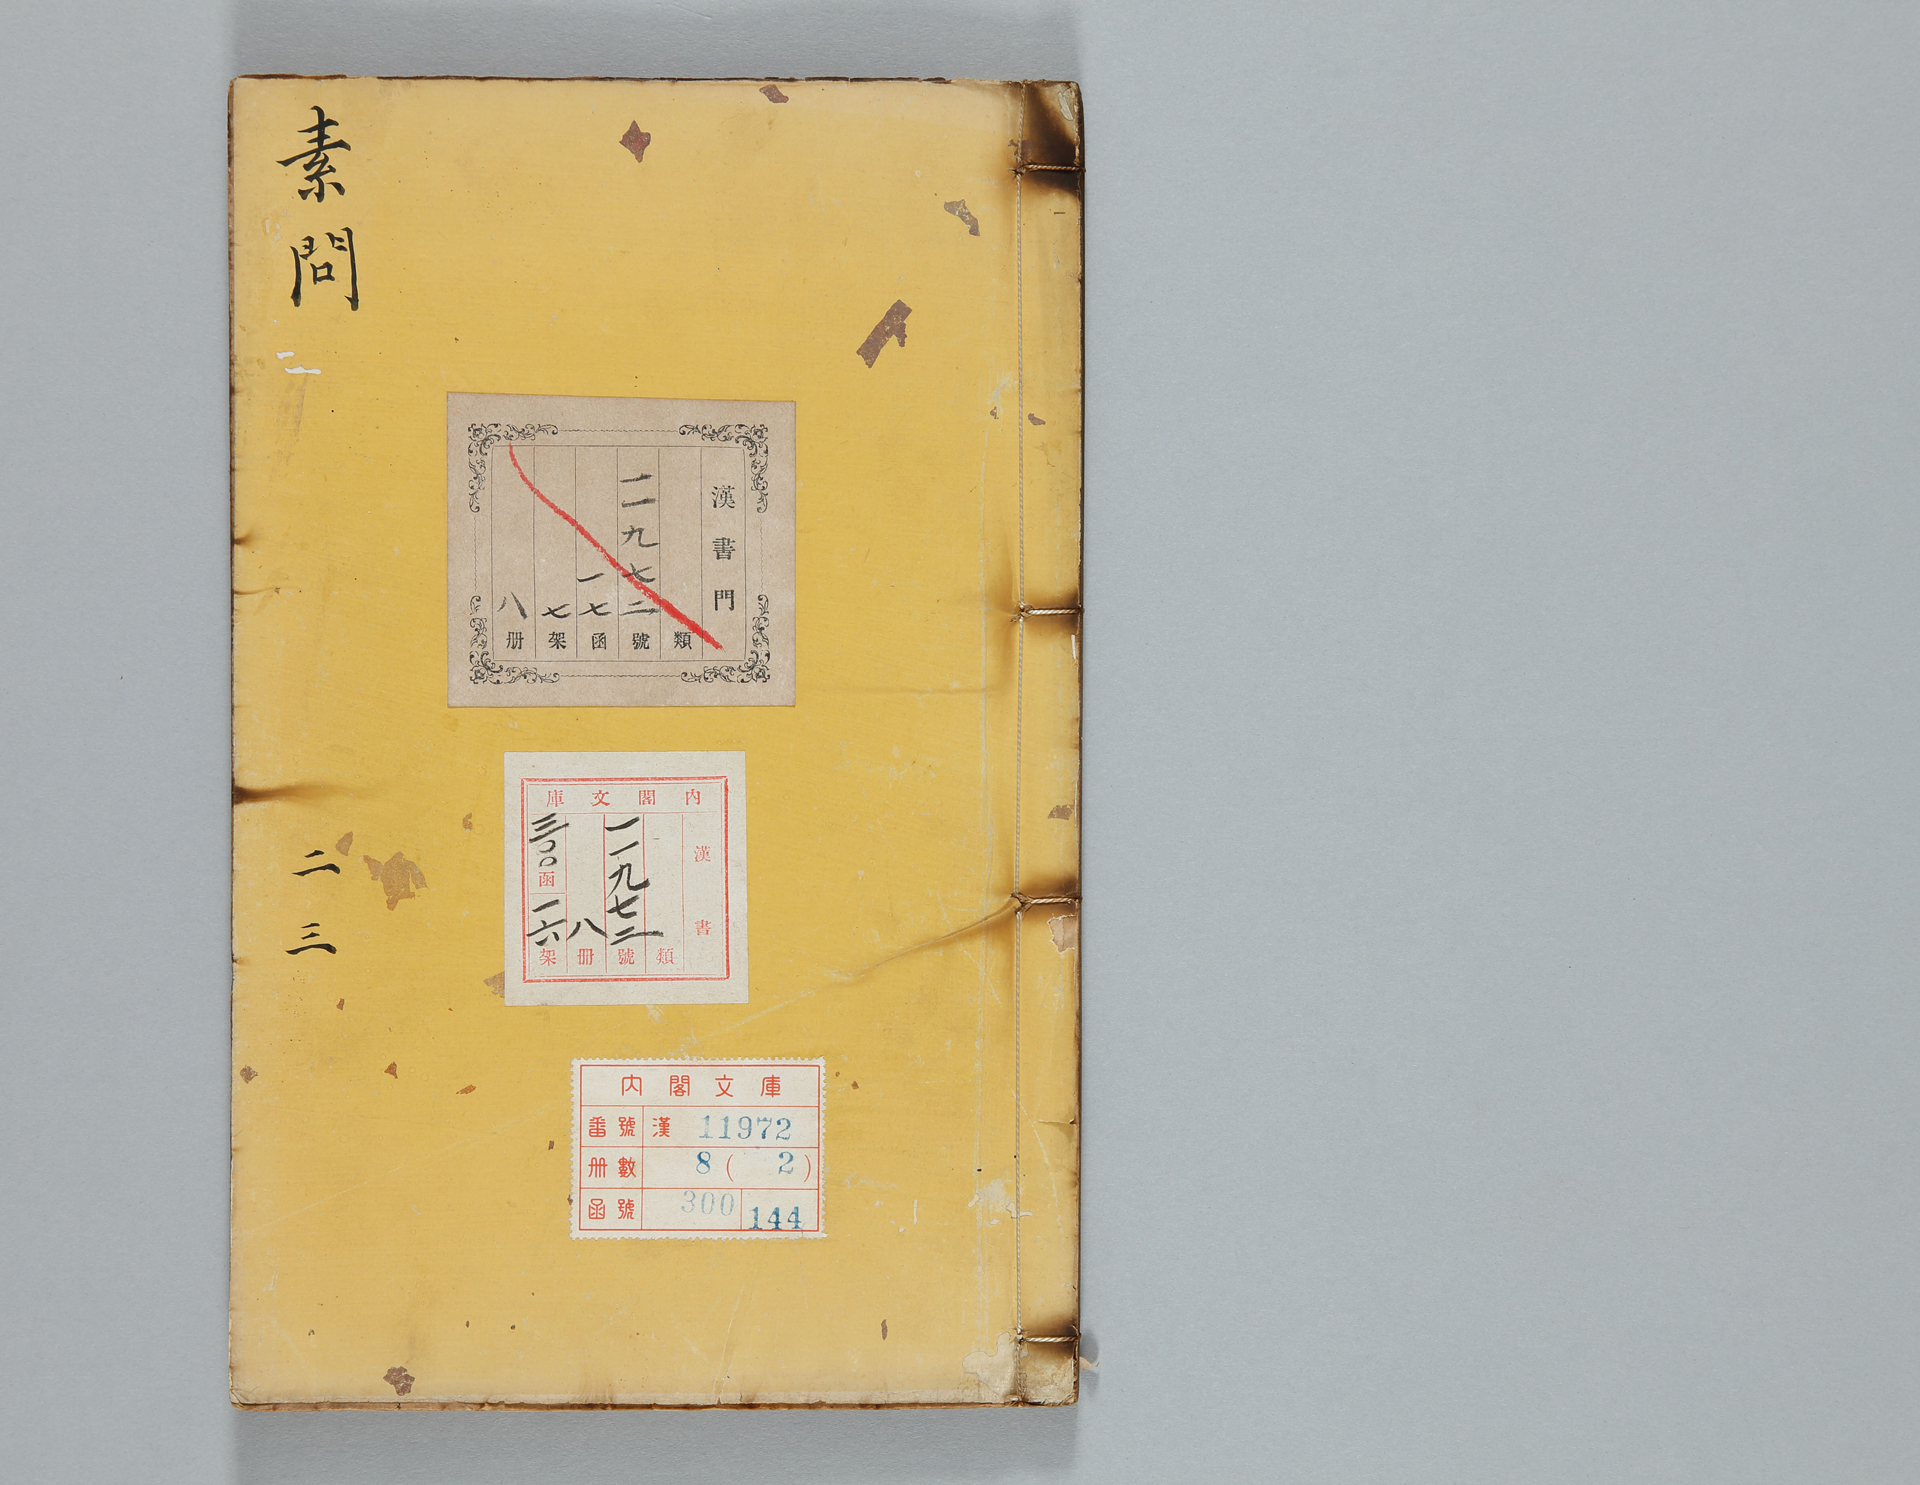 素問
二三
漢書門
類
一一九七二號
一七函
七架
八册
内閣文庫
漢書
類
一一九七二號
八冊
三〇〇函
一六架
内閣文庫
番號 漢 11972
册數 8 ( 2 )
函號 300 144